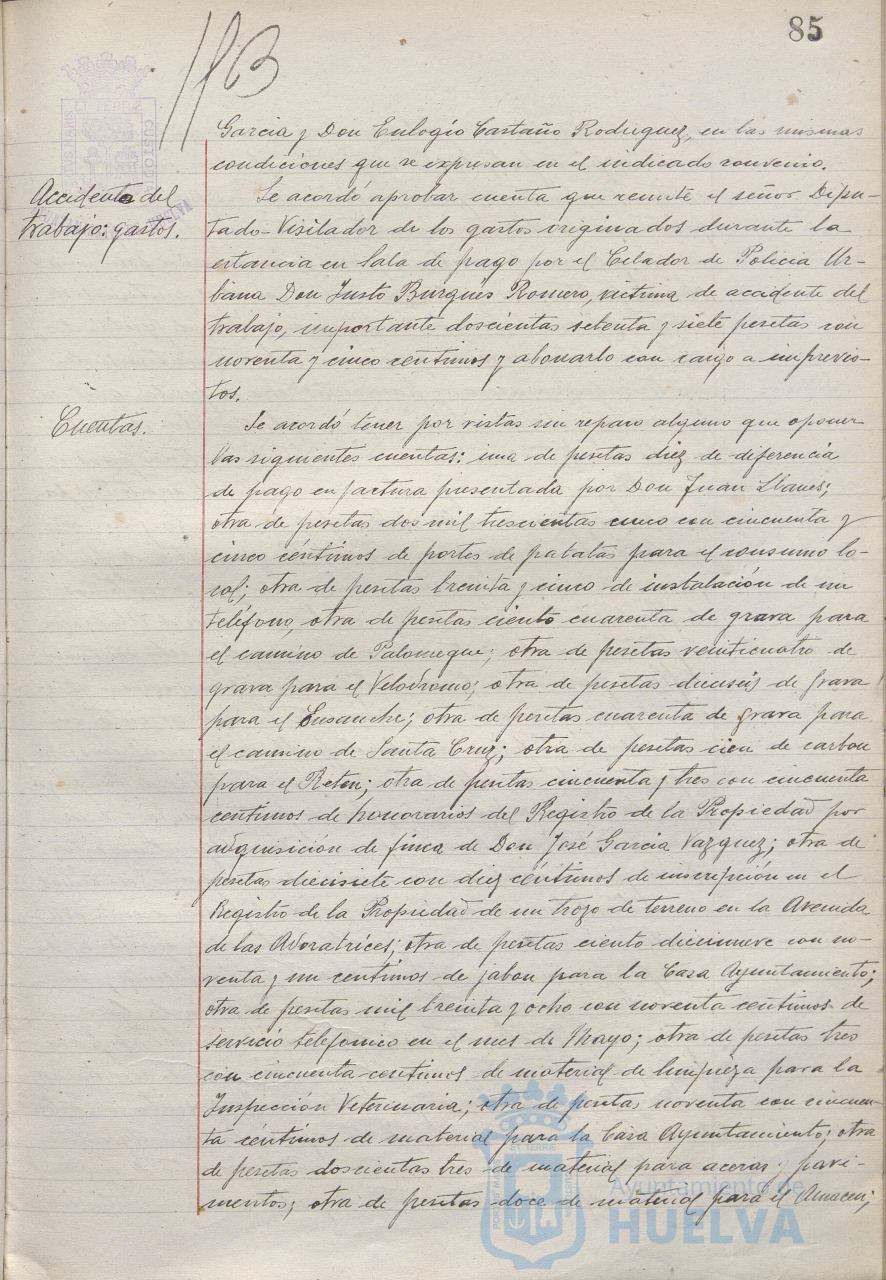 85
113
Garcia y Don Eulogio Castaño Rodriguez, en las mismas
condiciones que se expresan en el indicado convenio.
Accidente del
trabajo: gastos.
Se acordó aprobar cuenta que remite el señor Dipu-
tado-Visitador de los gastos originados durante la
estancia en Sala de pago por el Celador de Policia Ur-
bana Don Justo Burgués Romero, victima de accidente del
trabajo, importante doscientas setenta y siete pesetas con
noventa y cinco centimos y abonarlo con cargo a imprevis-
tos.
Cuentas.
Se acordó tener por vistas sin reparo alguno que oponer
las siguientes cuentas: una de pesetas diez de diferencia
de pago en factura presentada por Don Juan Llanes;
otra de pesetas dos mil trescientas cinco con cincuenta y
cinco céntimos de portes de patatas para el consumo lo-
cal; otra de pesetas treinta y cinco de instalación de un
teléfono, otra de pesetas ciento cuarenta de grava para
el camino de Palomeque; otra de pesetas veinticuatro de
grava para el Velodromo; otra de pesetas dieciseis de grava
para el Ensanche; otra de pesetas cuarenta de grava para
el camino de Santa Cruz; otra de pesetas cien de carbon
para el Reten; otra de pesetas cincuenta y tres con cincuenta
centimos de honorarios del Registro de la Propiedad por
adquisición de finca de Don José Garcia Vazquez; otra de
pesetas diecisiete con diez céntimos de inscripción en el
Registro de la Propiedad de un trozo de terreno en la Avenida
de las Adoratrices; otra de pesetas ciento diecinueve con no-
venta y un centimos de jabon para la Casa Ayuntamiento;
otra de pesetas mil treinta y ocho con noventa centimos de
servicio telefonico en el mes de Mayo; otra de pesetas tres
con cincuenta centimos de material de limpieza para la
Inspección Veterinaria; otra de pesetas noventa con cincuen-
ta céntimos de material para la Casa Ayuntamiento; otra
de pesetas doscientas tres de material para aceras y pavi-
mentos; otra de pesetas doce de material para el Almacen;
Ayuntamiento de
HUELVA